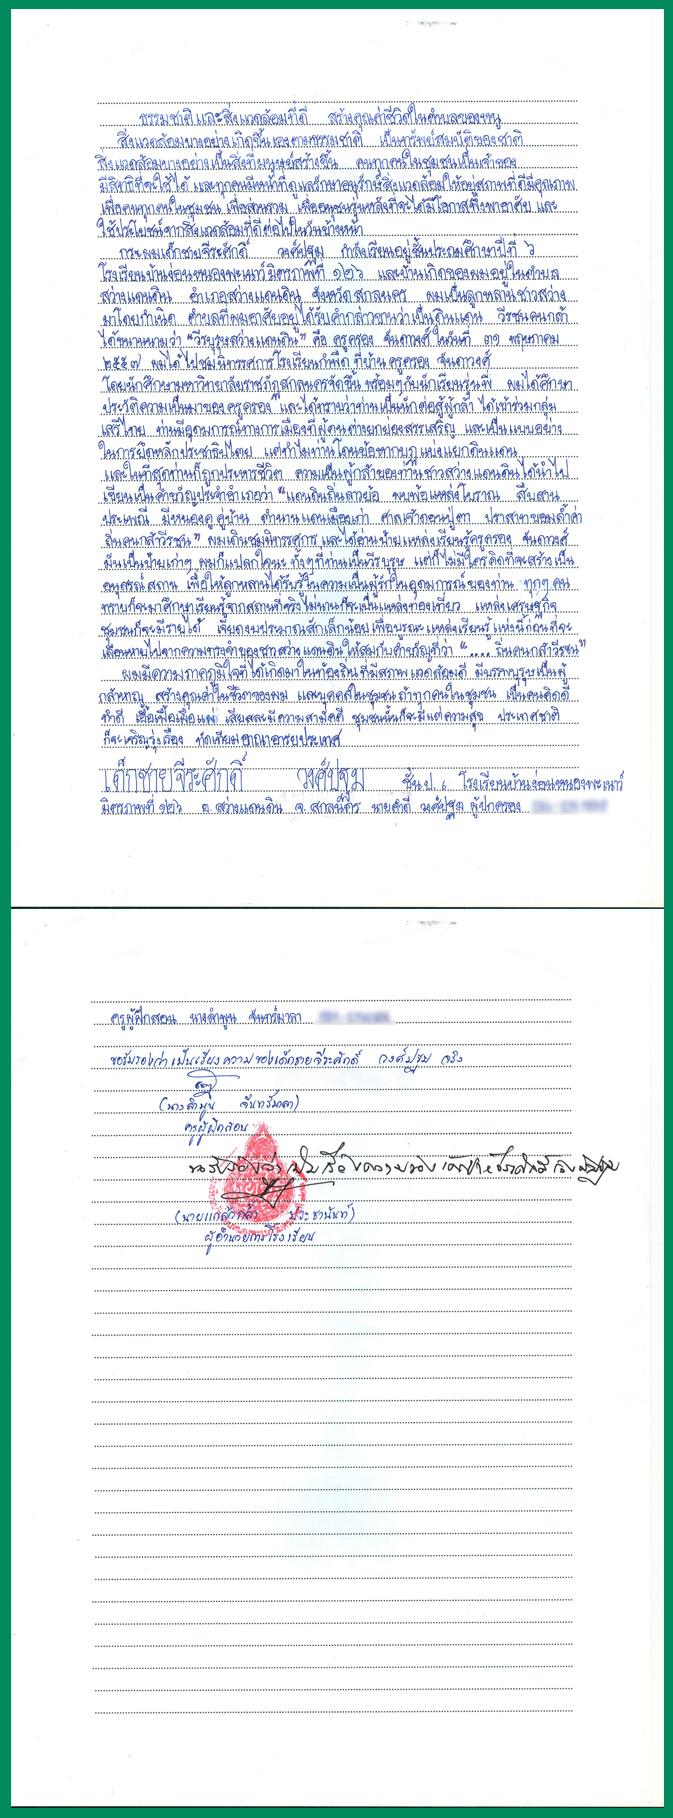 ธรรมชาติและสิ่งแวดล้อมที่ดี สร้างคุณค่าชีวิตในตำบลของหนู
สิ่งแวดล้อมบางอย่างเกิดขึ้นเองตามธรรมชาติ เป็นทรัพย์สมบัติของชาติ
สิ่งแวดล้อมบางอย่างเป็นสิ่งที่มนุษย์สร้างขึ้น คนทุกคนในชุมชนเป็นเจ้าของ
มีสิทธิที่จะใช้ได้ และทุกคนมีหน้าที่ดูแลรักษาอนุรักษ์สิ่งแวดล้อมให้อยู่สภาพที่ดีมีคุณภาพ
เพื่อคนทุกคนในชุมชน เพื่อส่วนรวม เพื่ออนุชนรุ่นหลังที่จะได้มีโอกาสพึ่งพาอาศัย และ
ใช้ประโยชน์จากสิ่งแวดล้อมที่ดีต่อไปในวันข้างหน้า
กระผมเด็กชายจีระศักดิ์ วงศ์ปฐม กำลังเรียนอยู่ชั้นประถมศึกษาปีที่ ๖
โรงเรียนบ้านง่อนหนองพะเนาว์มิตรภาพที่ ๑๒๖ และบ้านเกิดของผมอยู่ในตำบล
สว่างแดนดิน อำเภอสว่างแดนดิน จังหวัดสกลนคร ผมเป็นลูกหลานชาวสว่าง
มาโดยกำเนิด ตำบลที่ผมอาศัยอยู่ได้รับคำกล่าวขานว่าเป็นดินแดน วีรชนคนกล้า
ได้ขนานนามว่า "วีรบุรุษสว่างแดนดิน" คือ ครูครอง จันดาวงศ์ ในวันที่ ๓๑ พฤษภาคม
๒๕๕๗ ผมได้ไปชมนิทรรศการโรงเรียนกำพืด ที่บ้านครูครอง จันดาวงศ์
โดยนักศึกษามหาวิทยาลัยราชภัฏสกลนครจัดขึ้น พร้อมๆกับนักเรียนรุ่นพี่ ผมได้ศึกษา
ประวัติความเป็นมาของครูครอง และได้ทราบว่าท่านเป็นนักต่อสู้ผู้กล้า ได้เข้าร่วมกลุ่ม
เสรีไทย ท่านมีอุดมการณ์ทางการเมืองที่ผู้คนต่างยกย่องสรรเสริญ และเป็นแบบอย่าง
ในการยึดหลักประชาธิปไตย แต่ทำไมท่านโดนข้อหากบฏแบ่งแยกดินแดน
และในที่สุดท่านก็ถูกประหารชีวิต ความเป็นผู้กล้าของท่านชาวสว่างแดนดินได้นำไป
เขียนเป็นคำขวัญประจำอำเภอว่า "แดนดินถิ่นลาวย้อ พบพ้อแหล่งโบราณ สืบสาน
ประเพณี มีหนองคูคู่บ้าน ตำนานแดนเมืองเก่า ศาลเจ้าดอนปู่ตา ปราสาทขอมล้ำค่า
ถิ่นคนกล้าวีรชน" ผมเดินชมนิทรรศการ และได้อ่านป้ายแหล่งเรียนรู้ครูครอง จันดาวงศ์
มันเป็นป้ายเก่าๆ ผมก็แปลกใจนะ ทั้งๆที่ท่านเป็นวีรบุรุษ แต่ก็ไม่มีใครคิดที่จะสร้างเป็น
อนุสรณ์สถาน เพื่อให้ลูกหลานได้รับรู้ในความเป็นผู้รักในอุดมการณ์ของท่าน ทุกๆคน
ทราบก็จะมาศึกษาเรียนรู้จากสถานที่จริงไม่นานก็จะเป็นแหล่งท่องเที่ยว แหล่งเศรษฐกิจ
ชุมชนก็จะมีรายได้ เจียดงบประมาณสักเล็กน้อยเพื่อบูรณะแหล่งเรียนรู้แห่งนี้ก่อนที่จะ
เลือนหายไปจากความทรงจำของชาวสว่างแดนดิน ให้สมกับคำขวัญที่ว่า ".....ถิ่นคนกล้าวีรชน"
ผมมีความภาคภูมิใจที่ได้เกิดมาในท้องถิ่นที่มีสภาพแวดล้อมดี มีบรรพบุรุษเป็นผู้
กล้าหาญ สร้างคุณค่าในชีวิตของผม และบุคคลในชุมชน ถ้าทุกคนในชุมชน เป็นคนคิดดี
ทำดี เอื้อเฟื้อเผื่อแผ่ เสียสละมีความสามัคคี ชุมชนนั้นก็จะมีแต่ความสุข ประเทศชาติ
ก็จะเจริญรุ่งเรือง ทัดเทียมอาณาอารยประเทศ
เด็กชายจีระศักดิ์ วงศ์ปฐม ชั้น ป. ๖ โรงเรียนบ้านง่อนหนองพะเนาว์
มิตรภาพที่ ๑๒๖ อ.สว่างแดนดิน จ.สกลนคร นายคำดี วงศ์ปฐม ผู้ปกครอง
ครูผู้ฝึกสอน นางลำพูน จันทร์มาลา
ขอรับรองว่าเป็นเรียงความของเด็กชายจีระศักดิ์ วงศ์ปฐม จริง
(นางลำพูน จันทร์มาลา)
ครูผู้ฝึกสอน
ขอรับรองว่าเป็นเรียงความของ เด็กชายจีระศักดิ์ วงศ์ปฐม
(นายแก่นกล้า)
ผู้อำนวยการโรงเรียน